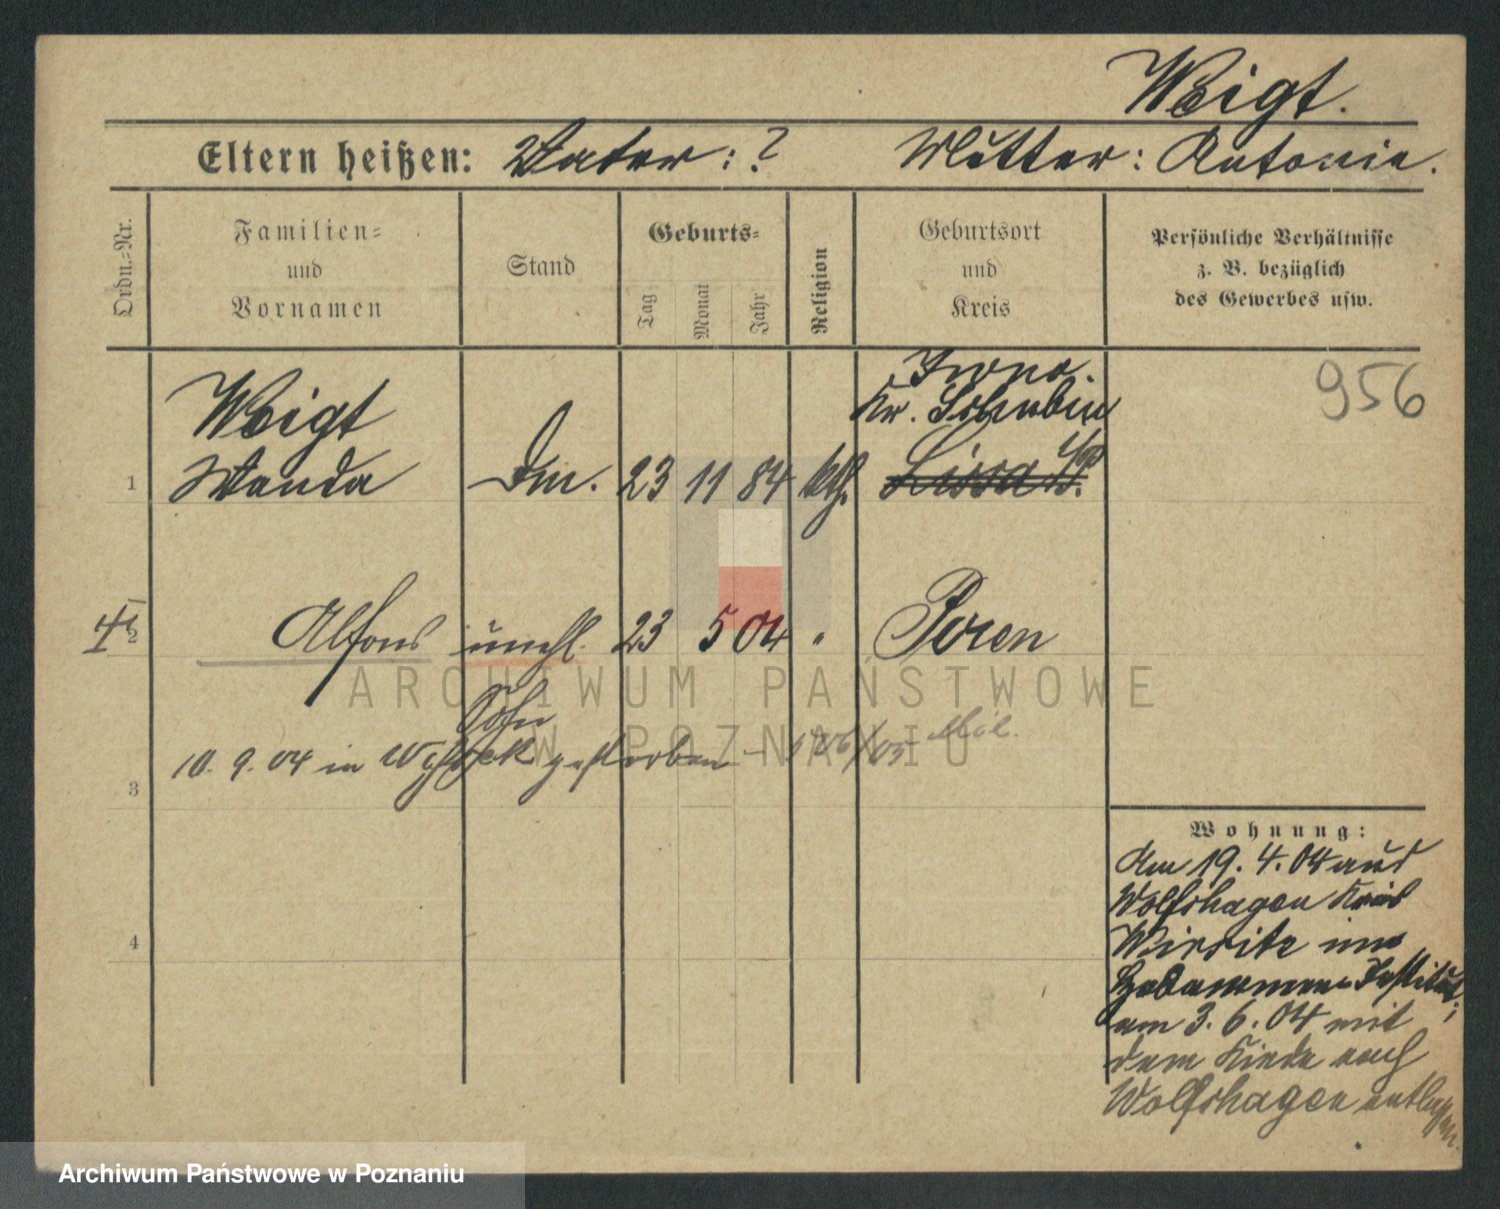 Weigt.
Eltern heißen: Vater: ? Mutter: Antonie.
Ordn.-Nr.
Familien-
und
Vornamen
Stand
Geburts-
Tag
Monat
Jahr
Religion
Geburtsort
und
Kreis
Persönliche Verhältnisse
z. B. bezüglich
des Gewerbes usw.
956
Kr. Schubin
Weigt
1 Wanda Dm. 23 11 84 kth. Lissa i/P.
2 Alfons unehl. 23 5 04 " Posen
Sohn
10. 9. 04 in gestorben -
3
4
Wohnung:
Am 19. 4. 04 aus
Wolfshagen Kreis
Wirsitz ins
Hebammen-Institut;
am 3. 6. 04 mit
dem Kinde nach
Wolfshagen entlassen.
ARCHIWUM PAŃSTWOWE
W POZNANIU
Archiwum Państwowe w Poznaniu